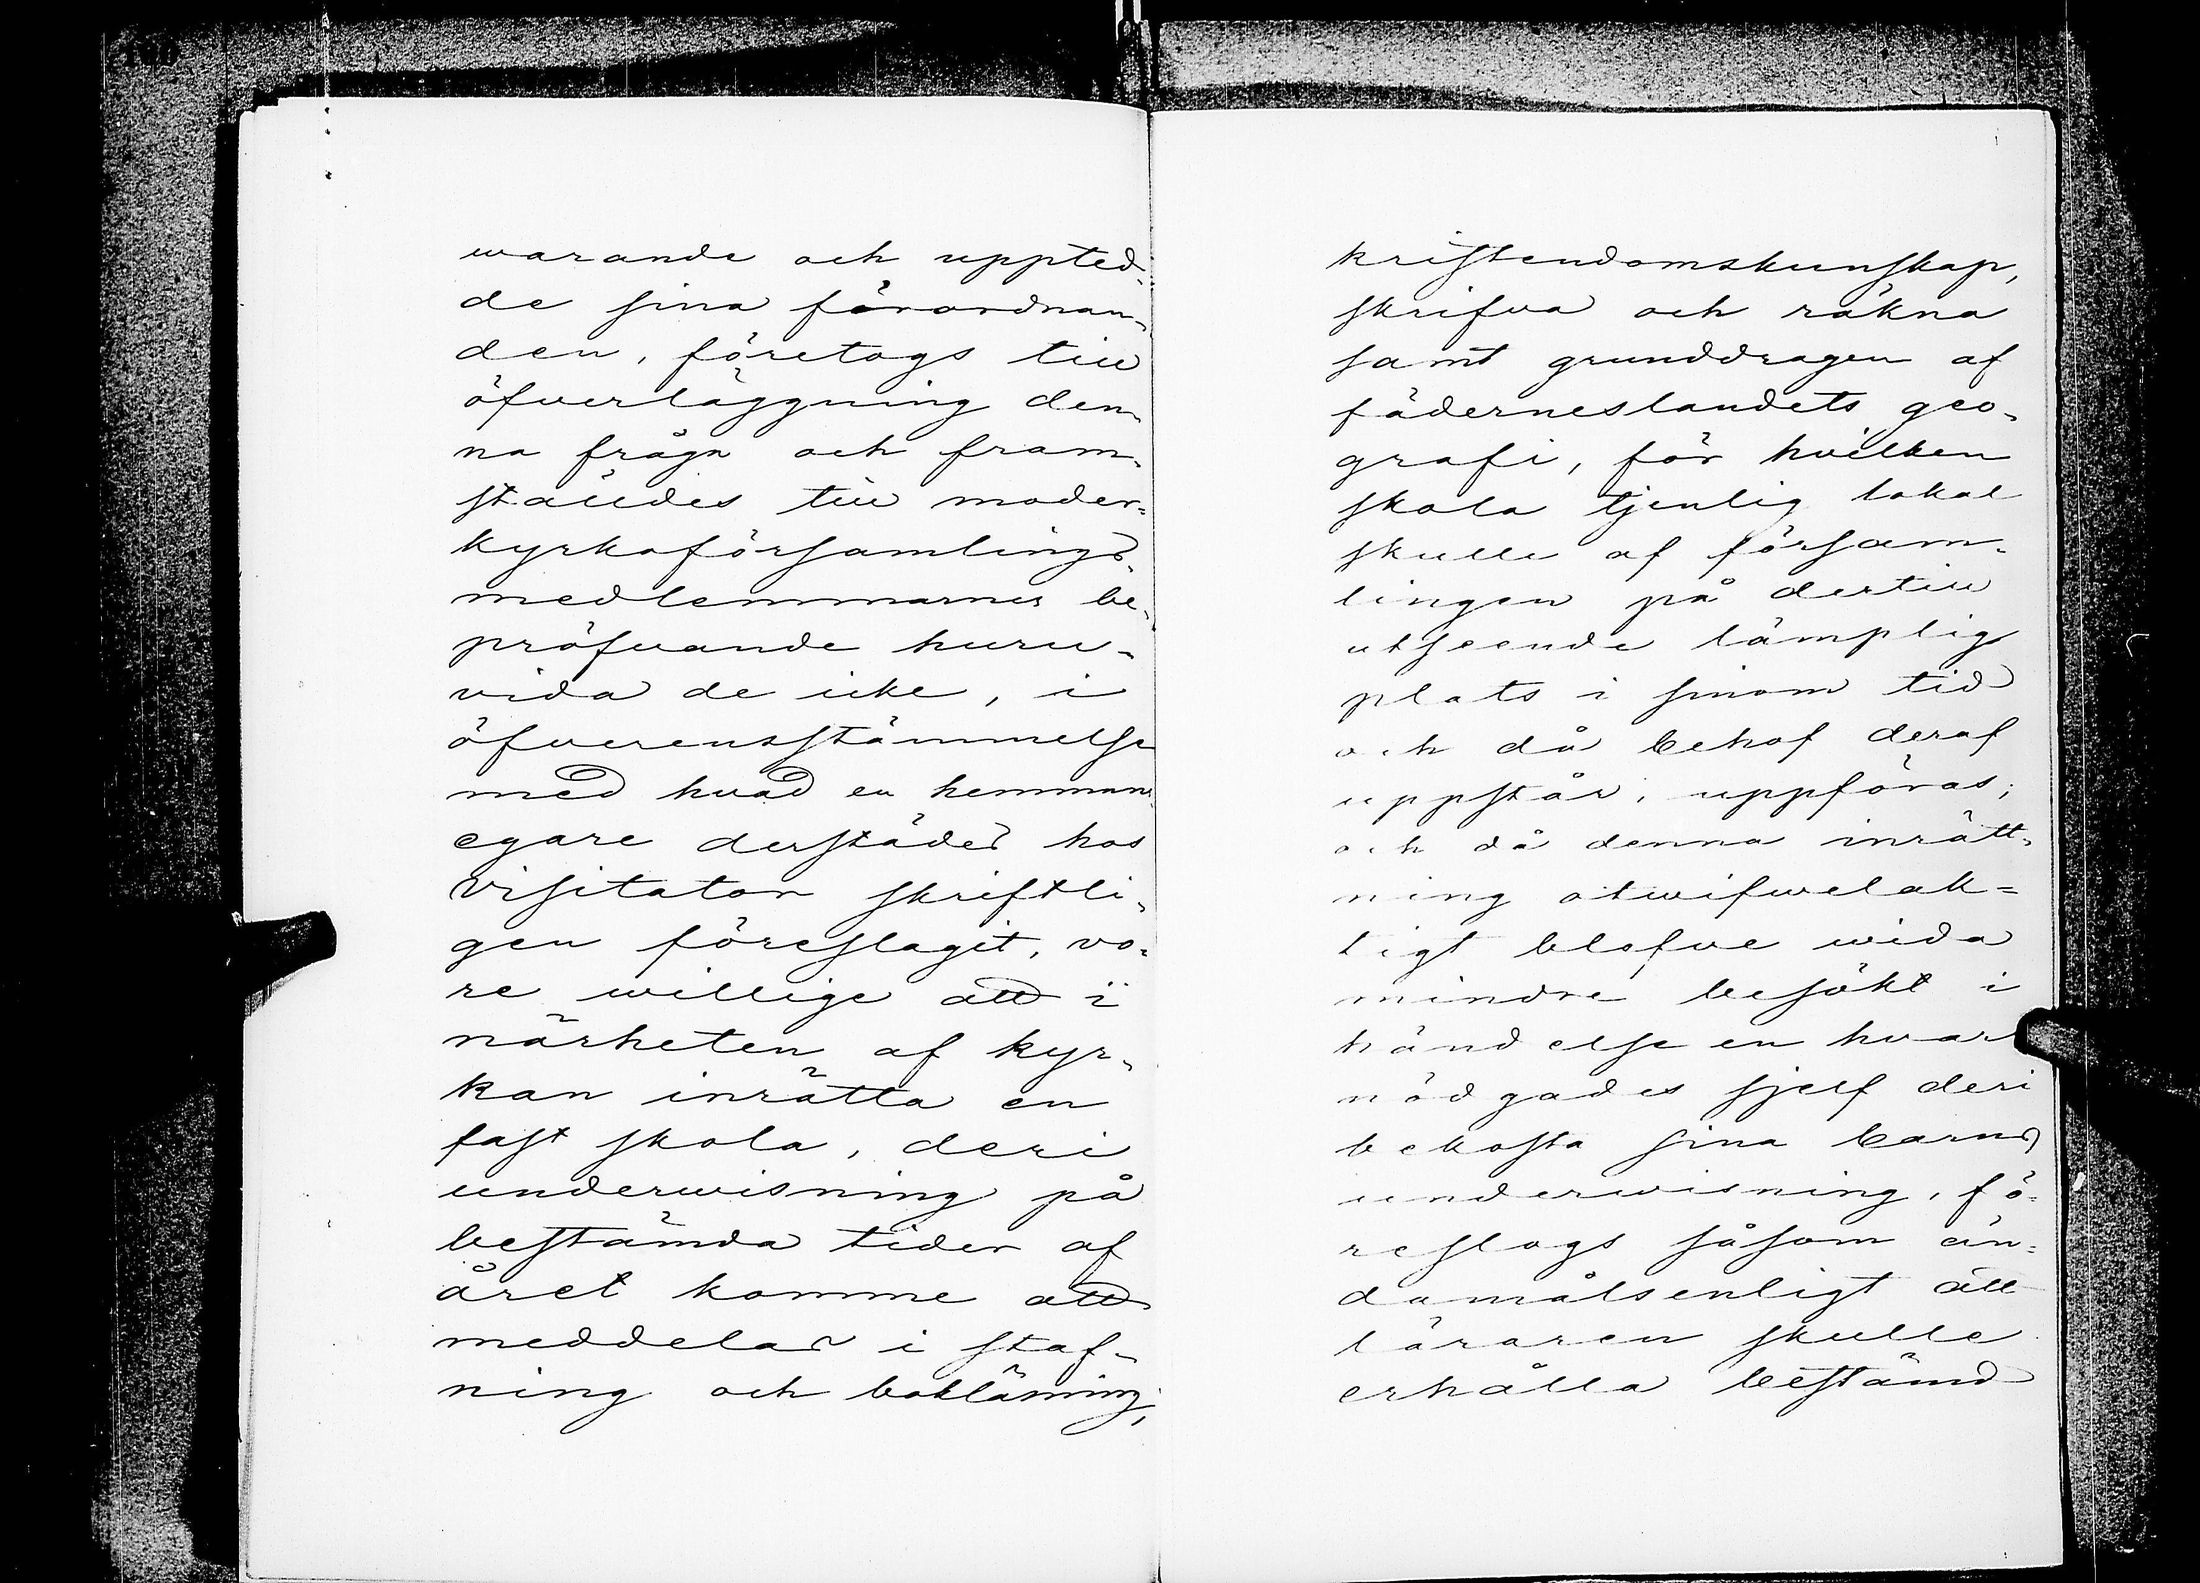 warande och uppted-
de sina förordnan-
den, företogs till
öfverläggning den-
na fråga och fram-
ställdes till moder-
kyrkoförsamlings-
medlemmarnes be-
pröfvande huru-
vida de icke, i
öfverensstämmelse
med hvad en hemmans-
egare derstädes hos
visitator skriftli-
gen föreslagit, vo-
re willige att i
närheten af kyr-
kan inrätta en
fast skola, deri
underwisning på
bestämda tider af
året komme att
meddelas i staf-
ning och bokläsning,
kristendomskunskap,
skrifva och räkna
samt grunddragen af
fäderneslandets geo-
grafi, för hvilken
skola tjenlig lokal
skulle af försam-
lingen på dertill
utseende lämplig
plats i sinom tid
och då behof deraf
uppstår, uppföras;
och då denna inrätt-
ning otwifwelak-
tigt blefve wida
mindre besökt i
händelse en hvar
nödgades sjelf deri
bekosta sina barns
underwisning, fö-
reslogs såsom än-
damålsenligt att
läraren skulle
erhålla bestämd